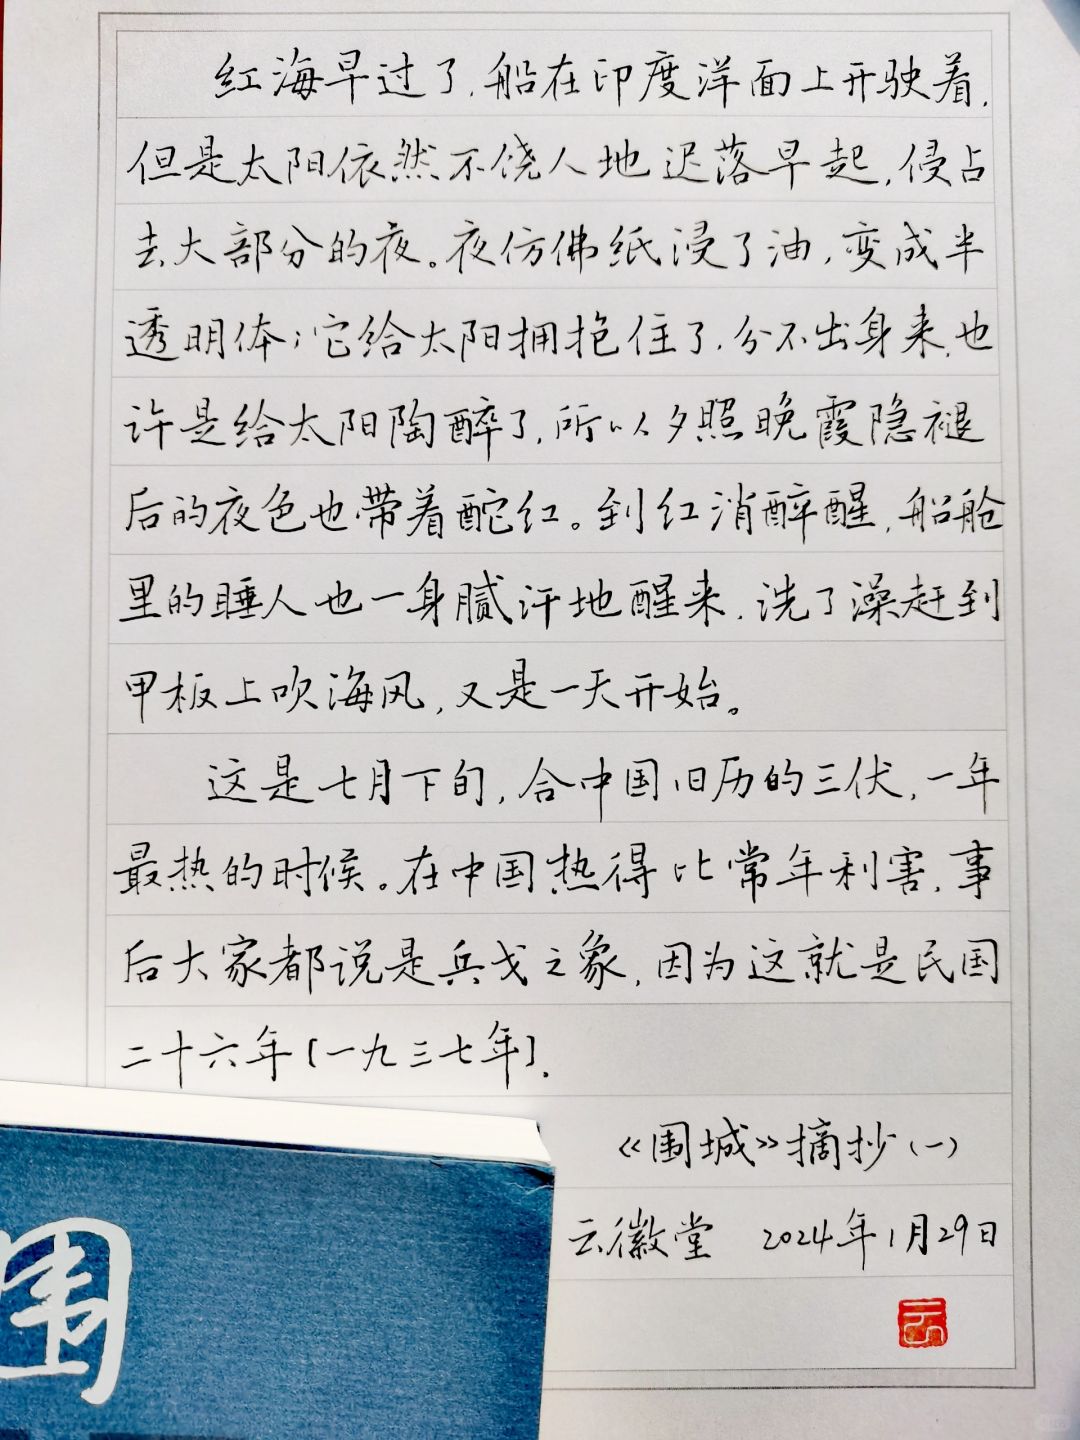 红海早过了,船在印度洋面上开驶着,
但是太阳依然不饶人地迟落早起,侵占
去大部分的夜。夜仿佛纸浸了油,变成半
透明体;它给太阳拥抱住了,分不出身来,也
许是给太阳陶醉了,所以夕照晚霞隐褪
后的夜色也带着酡红。到红消醉醒,船舱
里的睡人也一身腻汗地醒来,洗了澡赶到
甲板上吹海风,又是一天开始。
这是七月下旬,合中国旧历的三伏,一年
最热的时候。在中国热得比常年利害,事
后大家都说是兵戈之象,因为这就是民国
二十六年[一九三七年].
《围城》摘抄(一)
云徽堂 2024年1月29日
云
围